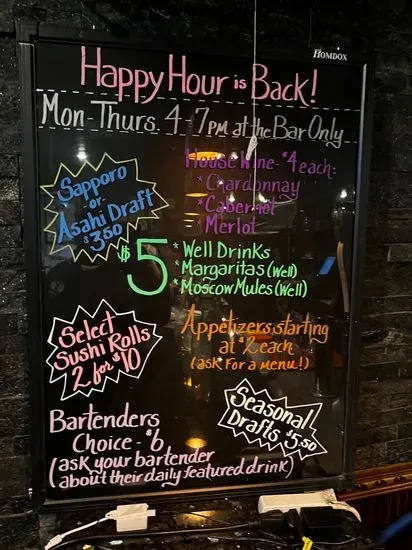 HOMDOX
Happy Hour is Back!
Mon-Thurs 4-7PM at the Bar Only
Sapporo
or
Asahi Draft
$3.50
House Wine - $4 each:
*Chardonnay
*Cabernet
*Merlot
$5 *Well Drinks
*Margaritas (Well)
*Moscow Mules (Well)
Select
Sushi Rolls
2 for $10
Appetizers starting
at $2 each
(ask for a menu!)
Bartenders
Choice - $6
(ask your bartender
about their daily featured drink)
Seasonal
Drafts $5.50